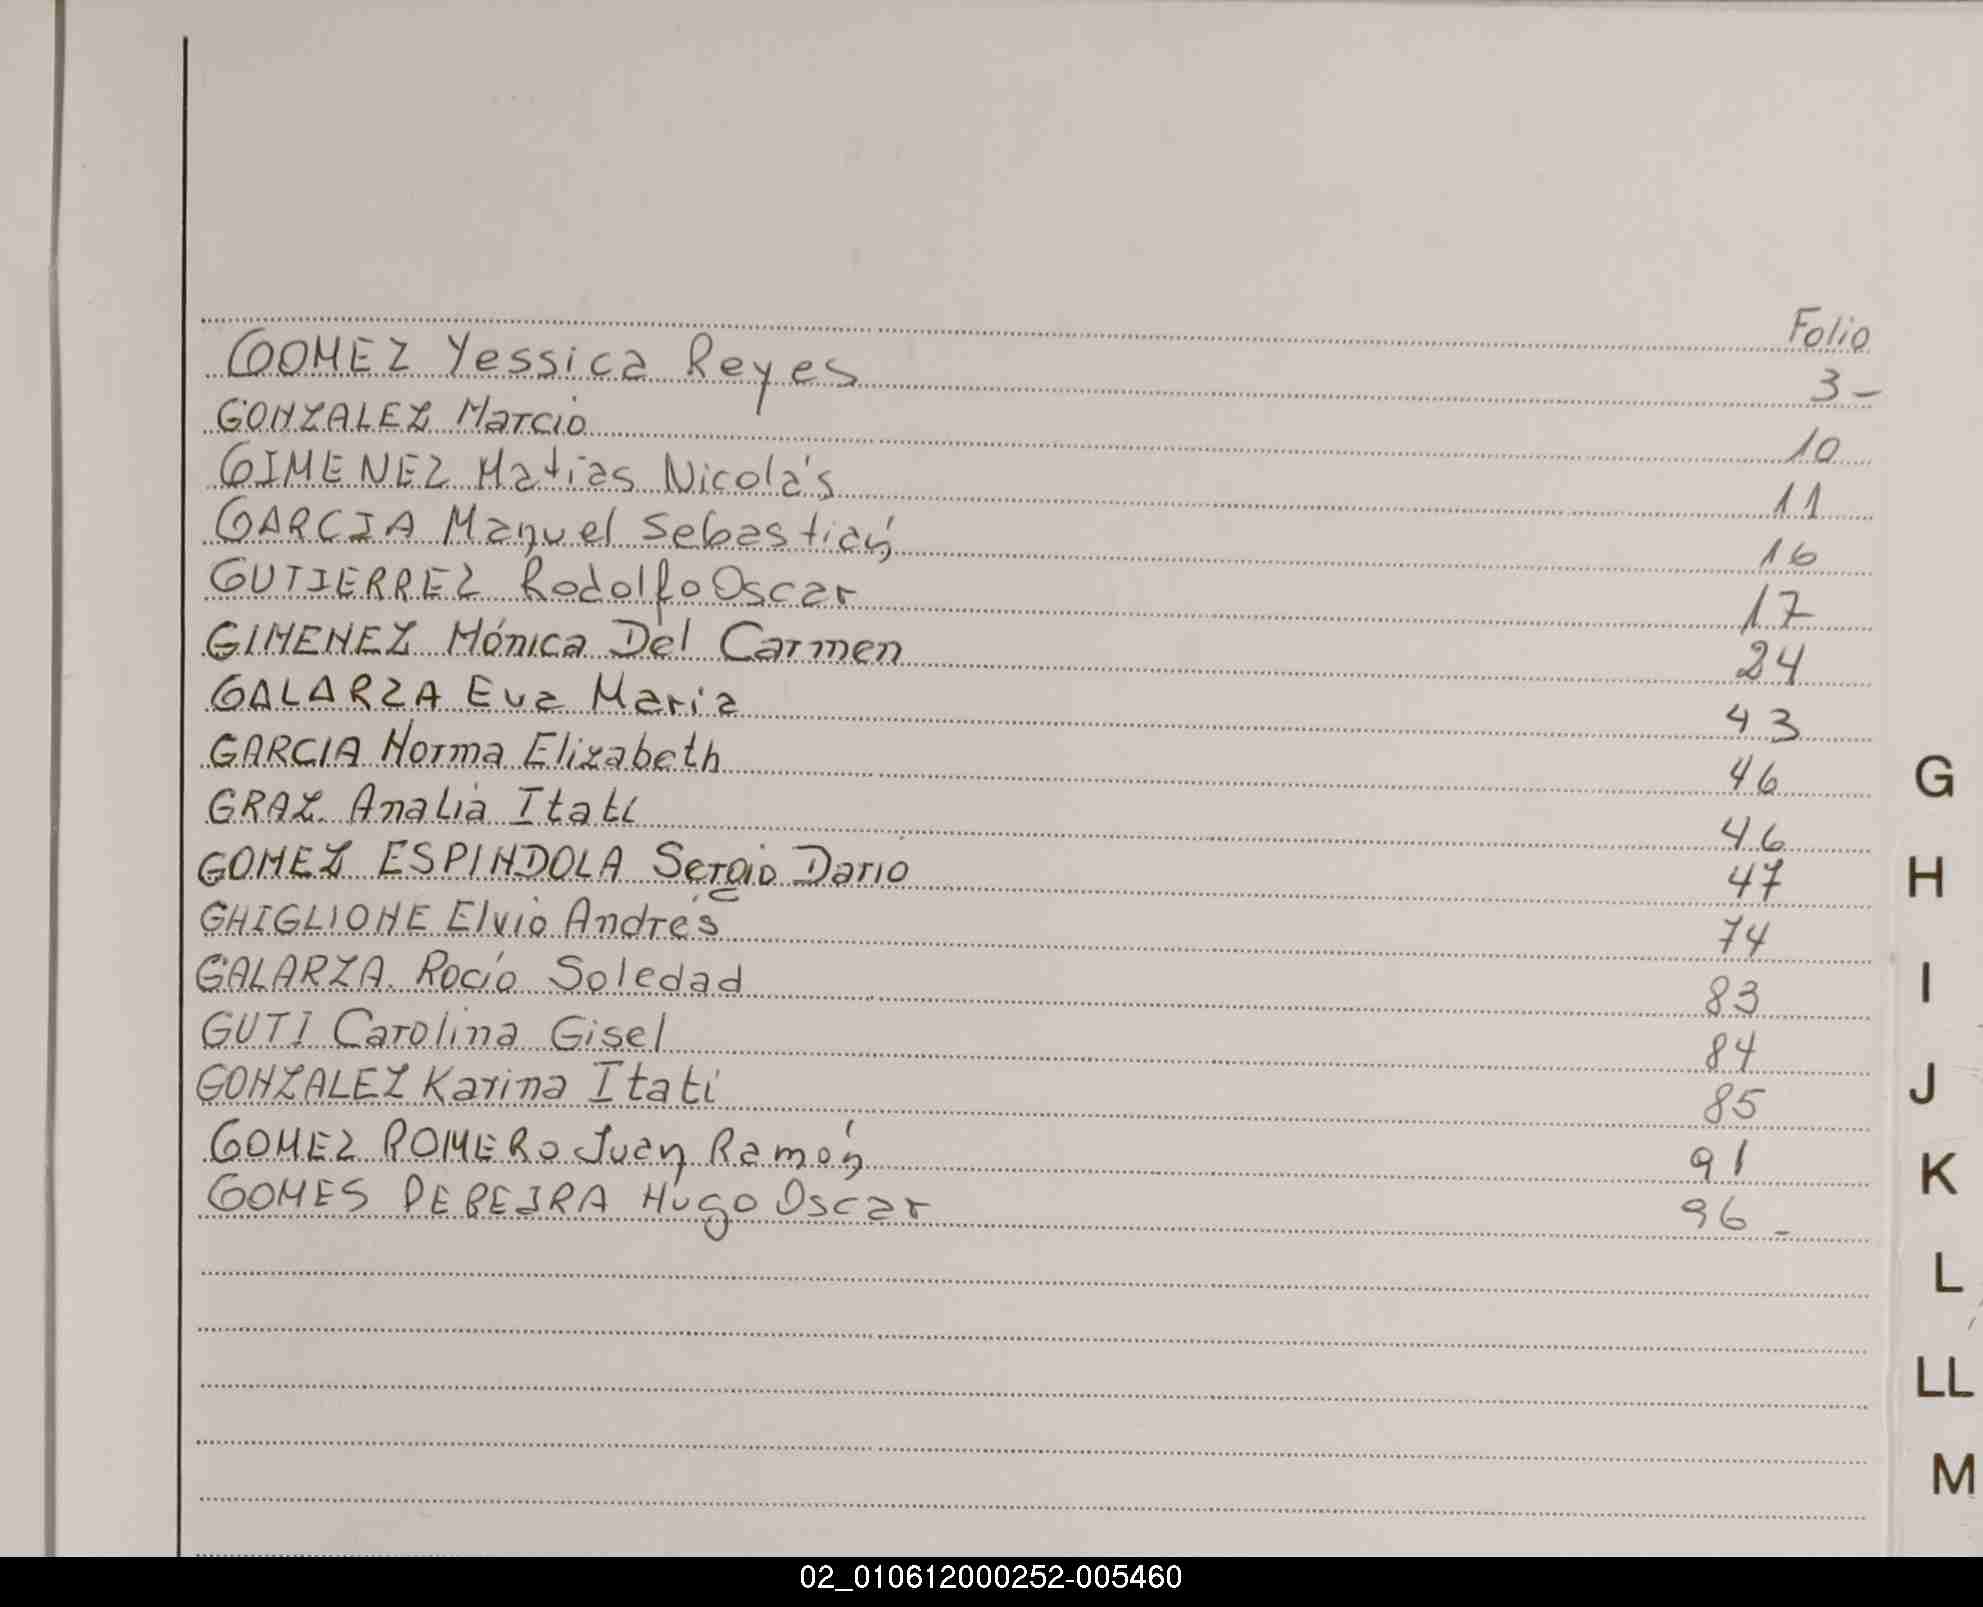 Folio
GOMEZ Yessica Reyes 3-
GONZALEZ Marcio 10
GIMENEZ Matias Nicolás 11
GARCIA Manuel Sebastián 16
GUTIERREZ Rodolfo Oscar 17
GIMENEZ Mónica Del Carmen 24
GALARZA Eva Maria 43
GARCIA Norma Elizabeth 46
GRAZ Analia Itati 46
GOMEZ ESPINDOLA Sergio Dario 47
GHIGLIONE Elvio Andrés 74
GALARZA Rocío Soledad 83
GUTI Carolina Gisel 84
GONZALEZ Karina Itati 85
GOMEZ ROMERO Juan Ramón 91
GOMES PEREIRA Hugo Oscar 96-
G
H
I
J
K
L
LL
M
02_010612000252-005460